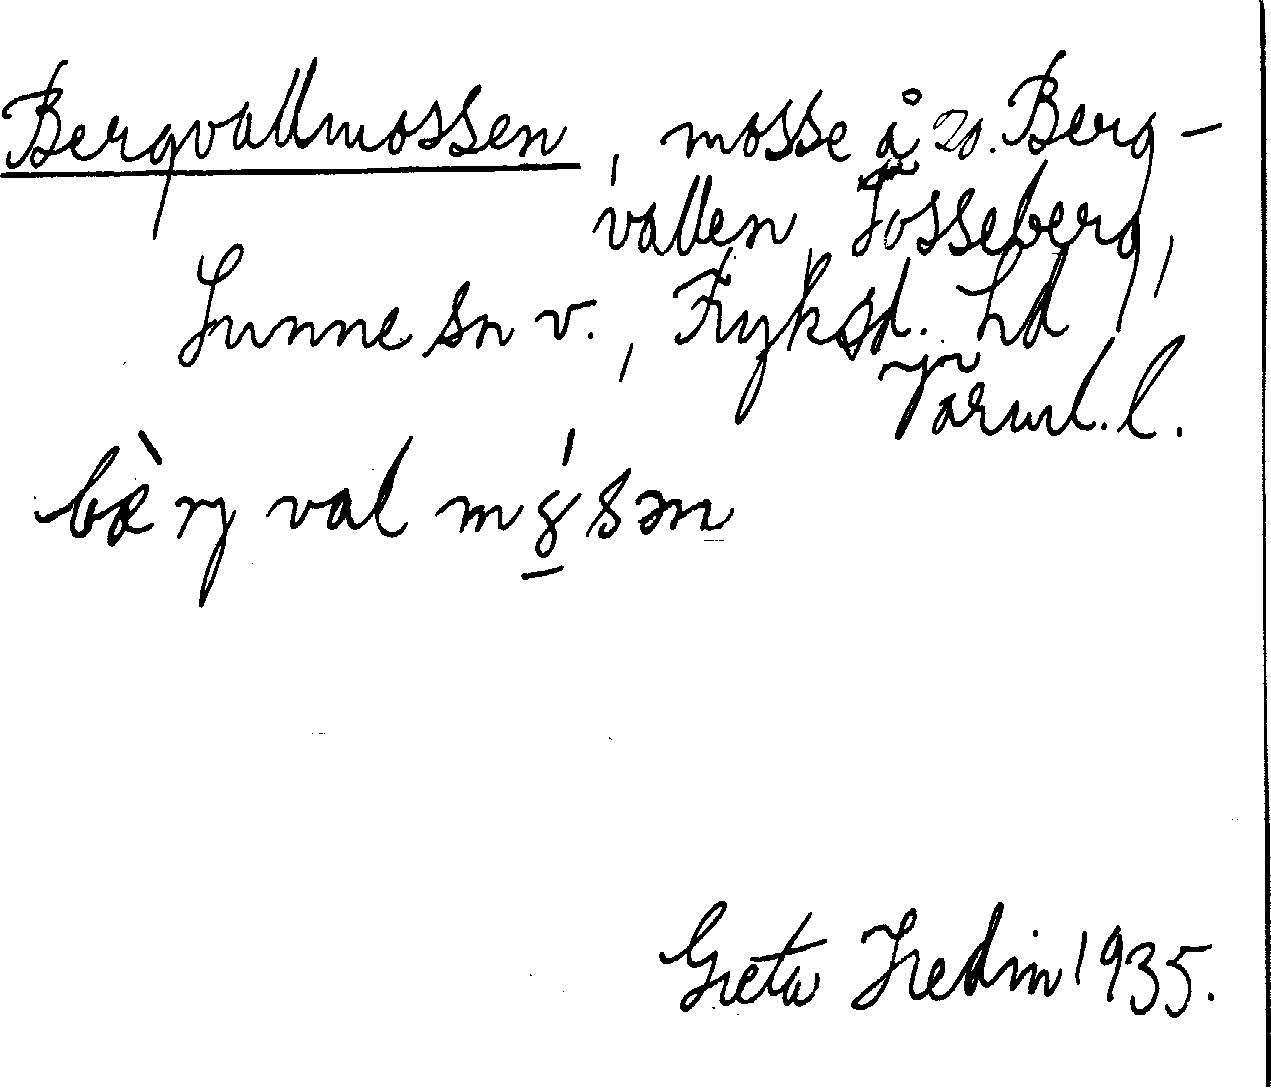 Bergvallmossen, mosse å zo. Berg-
vallen, Tosseberg,
Sunne sn v., Fryksd. hd
Värml. l.
bæ̀ rj val mɣ́sən
Greta Hedin 1935.